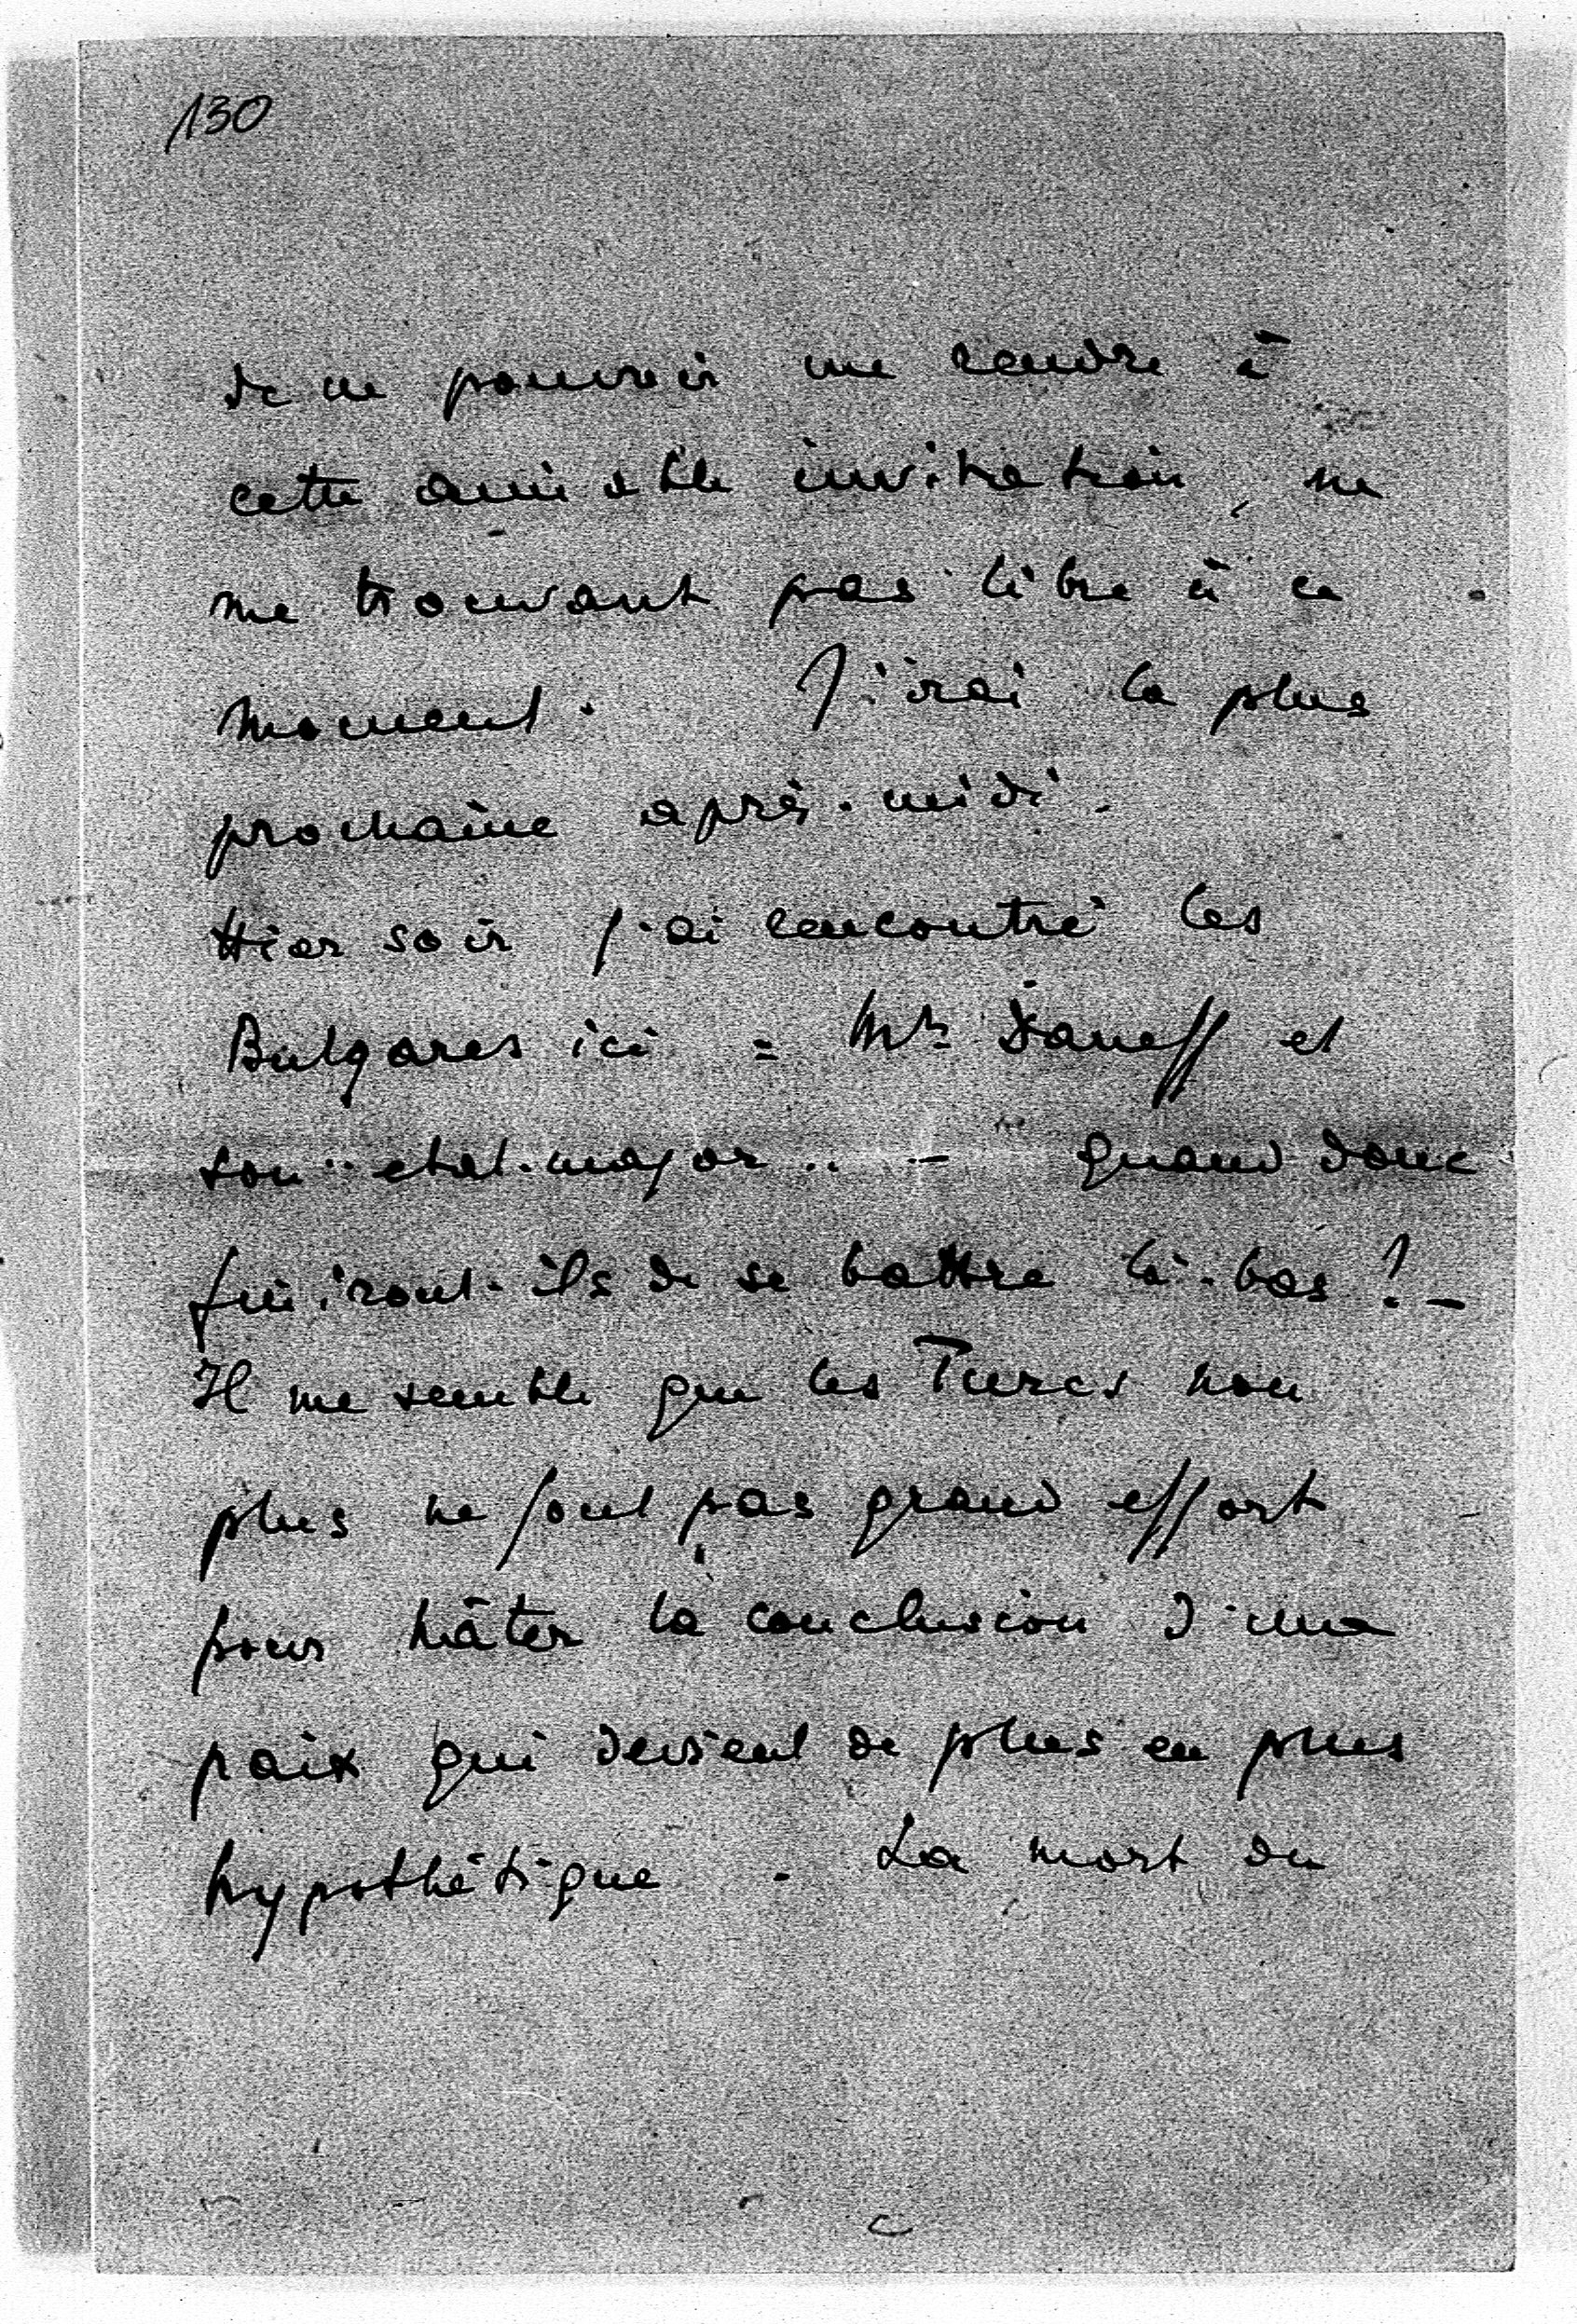 130
de ne pouvoir me rendre à
cette aimable invitation, ne
me trouvant pas libre à ce
moment. J'irai la plus
prochaine après-midi.
Hier soir j'ai rencontré les
Bulgares ici = Mr Daneff et
son "etat-major" — quand donc
finiront-ils de se battre là-bas? —
Il me semble que les Turcs non
plus ne font pas grand effort
pour hâter la conclusion d'une
paix qui devient de plus en plus
hypothétique. La mort du